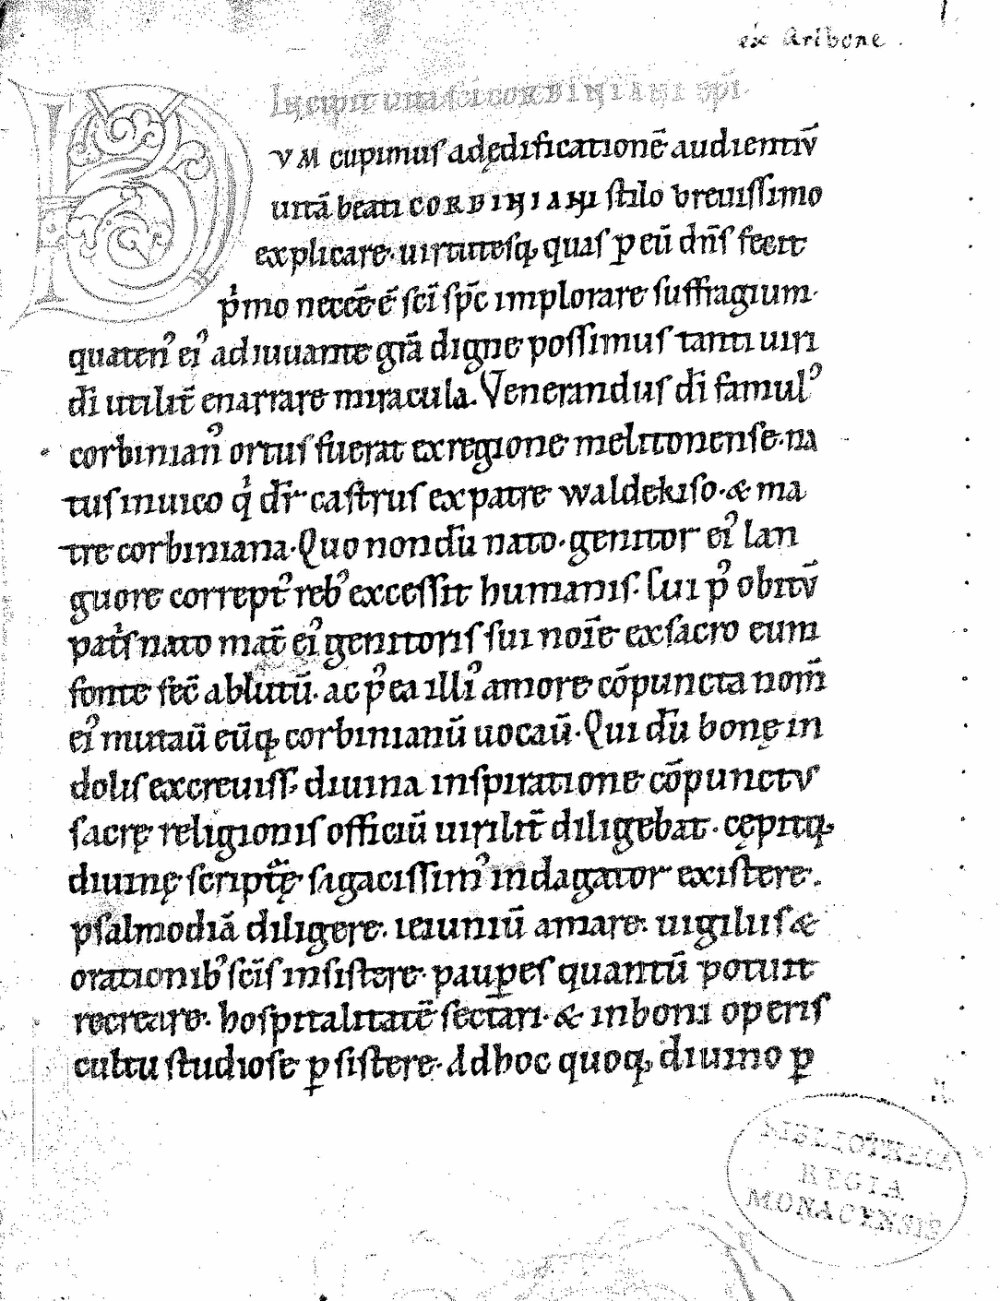 ex Aribone.
Incipit uita sci CORBINIANI epi.
DVM cupimus ad ędificationē audientiū
uitā beati CORBINIANI stilo breuissimo
explicare. uirtutesq; quas p eū dn̄s fecit
p̍mo necēē ē sc̄i sp̄c implorare suffragium.
quatenꝰ eiꝰ adiuuante grā digne possimus tanti uiri
dī utilit̄ enarrare miracula. Venerandus dī famulꝰ
corbinianꝰ ortus fuerat ex regione melitonense. na
tus in uico q̍ dr̄ castrus ex patre waldekiso. & ma
tre corbiniana. Quo nondū nato. genitor eiꝰ lan
guore correptꝰ rebꝰ excessit humanis. Cui pꝰ obitū
pat̍s nato mat̄ eiꝰ genitoris sui noīe ex sacro eum
fonte fec̄ ablutū. ac pꝰea illiꝰ amore cōpuncta nom̄
eiꝰ mutaū eūq; corbinianū uocaū. Qui dū bonę in
dolis excreuiss; diuina inspiratione cōpunctus
sacrę religionis officiū uirilit̄ diligebat. cępitq;
diuinę scriptᷓę sagacissimꝰ indagator existere.
psalmodiā diligere. ieiuniū amare. uigiliis &
orationibꝰ scīs insistere. paupes quantū potuit
recreare. hospitalitatē sectari. & in boni operis
cultu studiose psistere. Ad hoc quoq; diuino p
BIBLIOTHECA
REGIA
MONACENSIS